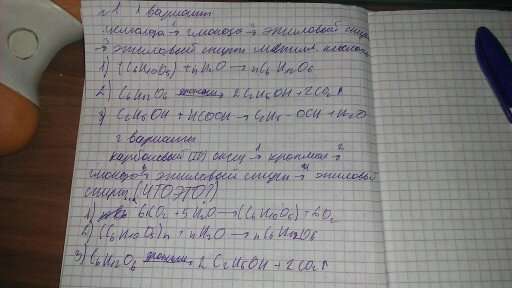 №1. 1 вариант
целлюлоза → глюкоза → этиловый спирт
→ этиловый спирт метил.
1) (C6H10O5) + nH2O → nC6H12O6
2) C6H12O6 дрожжи→ 2C2H5OH + 2CO2↑
3) C2H5OH + HCOOH → C2H5 - OCH + H2O
2 вариант
карбоновый (IV) оксид 1→ крахмал 2→
глюкоза 3→ этиловый спирт 4→ этиловый
спирт (ЧТО ЭТО?)
1) 6CO2 + 5H2O → (C6H10O5) + 6O2
2) (C6H10O5)n + nH2O → nC6H12O6
3) C6H12O6 дрожжи→ 2C2H5OH + 2CO2↑